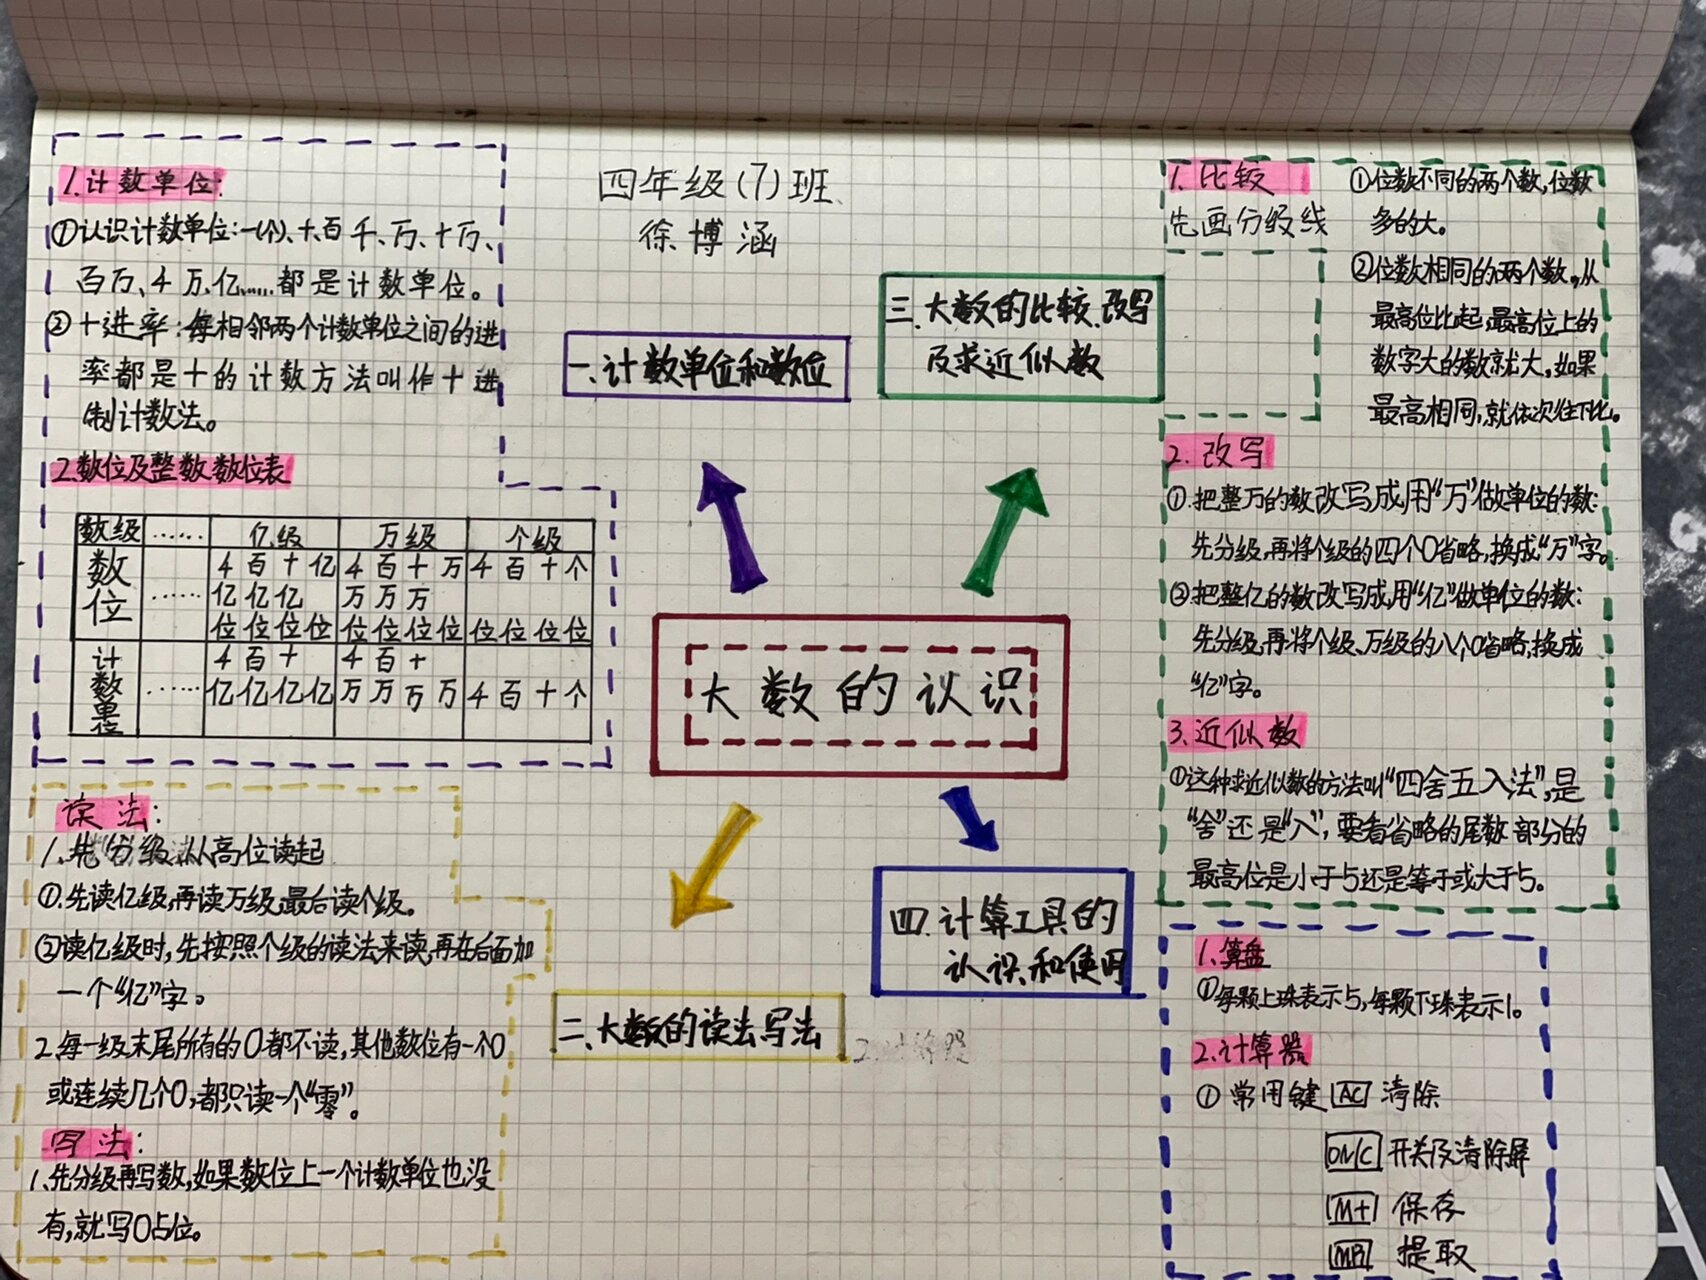 四年级(7)班
徐博涵
大数的认识
一、计数单位和数位
1.计数单位:
①认识计数单位:一(个)、十、百、千、万、十万、
百万、千万、亿……都是计数单位。
②十进率:每相邻两个计数单位之间的进
率都是十的计数方法叫作十进
制计数法。
2.数位及整数数位表
数级 …… 亿级 万级 个级
数位 …… 千百十亿 千百十万 千百十个
亿亿亿 万万万
位位位位 位位位位 位位位位
计数单位 …… 千百十 千百十
亿亿亿亿 万万万万 千百十个
二、大数的读法写法
读法:
1.先分级,从高位读起
①.先读亿级,再读万级,最后读个级。
②读亿级时,先按照个级的读法来读,再在后面加
一个“亿”字。
2.每一级末尾所有的0都不读,其他数位有一个0
或连续几个0,都只读一个“零”。
写法:
1.先分级再写数,如果数位上一个计数单位也没
有,就写0占位。
三.大数的比较.改写
及求近似数
1.比较
先画分级线
①位数不同的两个数,位数
多的大。
②位数相同的两个数,从
最高位比起,最高位上的
数字大的数就大,如果
最高相同,就依次往下比。
2.改写
①.把整万的数改写成用“万”做单位的数:
先分级,再将个级的四个0省略,换成“万”字。
②把整亿的数改写成用“亿”做单位的数:
先分级,再将个级、万级的八个0省略,换成
“亿”字。
3.近似数
①这种求近似数的方法叫“四舍五入法”,是
“舍”还是“入”,要看省略的尾数部分的
最高位是小于5还是等于或大于5。
四.计算工具的
认识和使用
2.计算器
1.算盘
①每颗上珠表示5,每颗下珠表示1。
2.计算器
①常用键 AC 清除
ON/C 开关及清除屏
M+ 保存
MR 提取
A